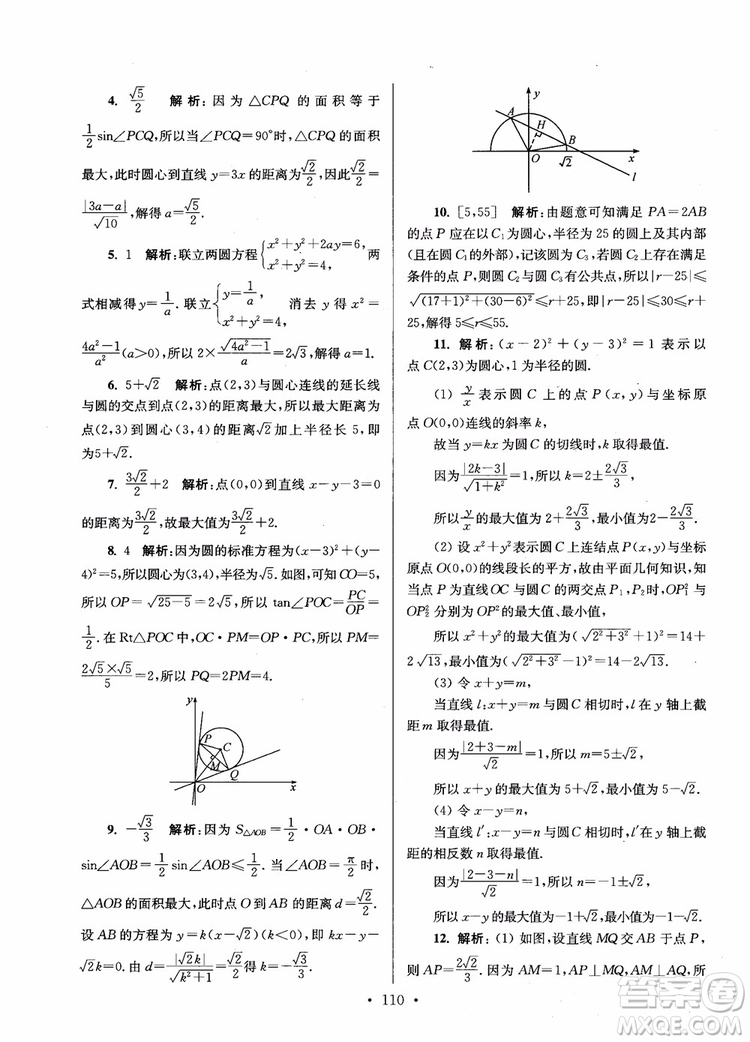 4. √5/2 解析:因为△CPQ的面积等于
1/2 sin∠PCQ,所以当∠PCQ=90°时,△CPQ的面积
最大,此时圆心到直线 y=3x 的距离为√2/2,因此
|3a-a|/√10,解得 a=√5/2.
5. 1 解析:联立两圆方程{x²+y²+2ay=6, x²+y²=4, 两
式相减得 y=1/a. 联立{y=1/a, x²+y²=4, 消去 y 得 x²=
(4a²-1)/a²(a>0),所以 2×√(4a²-1)/a=2√3,解得 a=1.
6. 5+√2 解析:点(2,3)与圆心连线的延长线
与圆的交点到点(2,3)的距离最大,所以最大距离为
点(2,3)到圆心(3,4)的距离√2加上半径长 5,即
为5+√2.
7. 3√2/2+2 解析:点(0,0)到直线 x-y-3=0
的距离为3√2/2,故最大值为3√2/2+2.
8. 4 解析:因为圆的标准方程为(x-3)²+(y-
4)²=5,所以圆心(3,4),半径为√5. 如图,可知 CO=5,
所以 OP=√(25-5)=2√5,所以 tan∠POC=PC/OP=
1/2. 在 Rt△POC 中,OC·PM=OP·PC,所以 PM=
2√5×√5/5=2,所以 PQ=2PM=4.
y
P
C
M
Q
O
x
9. -√3/3 解析:因为 S△AOB=1/2·OA·OB·
sin∠AOB=1/2 sin∠AOB≤1/2. 当∠AOB=π/2时,
△AOB的面积最大,此时点 O 到 AB 的距离 d=√2/2.
设 AB 的方程为 y=k(x-√2)(k<0),即 kx-y-
√2k=0. 由 d=|√2k|/√(k²+1)=√2/2得 k=-√3/3.
y
A
H
B
O
√2
x
l
10. [5,55] 解析:由题意可知满足 PA=2AB
的点 P 应在以 C₁为圆心,半径为 25 的圆上及其内部
(且在圆 C₁的外部),记该圆为 C₃,若圆 C₂上存在满足
条件的点 P,则圆 C₂与圆 C₃有公共点,所以|r-25|≤
√((17+1)²+(30-6)²)≤r+25,即|r-25|≤30≤r+
25,解得 5≤r≤55.
11. 解析:(x-2)²+(y-3)²=1 表示以
点 C(2,3)为圆心,1 为半径的圆.
(1) y/x表示圆 C 上的点 P(x,y)与坐标原
点 O(0,0)连线的斜率 k,
故当 y=kx 为圆 C 的切线时,k 取得最值.
因为|2k-3|/√(1+k²)=1,所以 k=2±2√3/3,
所以y/x的最大值为 2+2√3/3,最小值为2-2√3/3.
(2) 设 x²+y²表示圆 C 上连结点 P(x,y)与坐标
原点 O(0,0)的线段长的平方,故由平面几何知识,知
当点 P 为直线OC 与圆 C 的两交点 P₁,P₂时,OP₁²与
OP₂²分别为 OP²的最大值、最小值,
所以 x²+y²的最大值为(√(2²+3²)+1)²=14+
2√13,最小值为(√(2²+3²)-1)²=14-2√13.
(3) 令 x+y=m,
当直线 l:x+y=m 与圆 C 相切时,l 在 y 轴上截
距 m 取得最值.
因为|2+3-m|/√2=1,所以 m=5±√2,
所以 x+y 的最大值为 5+√2,最小值为 5-√2.
(4) 令 x-y=n,
当直线 l′:x-y=n 与圆 C 相切时,l′在 y 轴上截
距的相反数 n 取得最值.
因为|2-3-n|/√2=1,所以 n=-1±√2,
所以 x-y 的最大值为-1+√2,最小值为-1-√2.
12. 解析:(1) 如图,设直线 MQ 交 AB 于点 P,
则 AP=2√2/3. 因为 AM=1,AP⊥MQ,AM⊥AQ,所
· 110 ·
答案圈